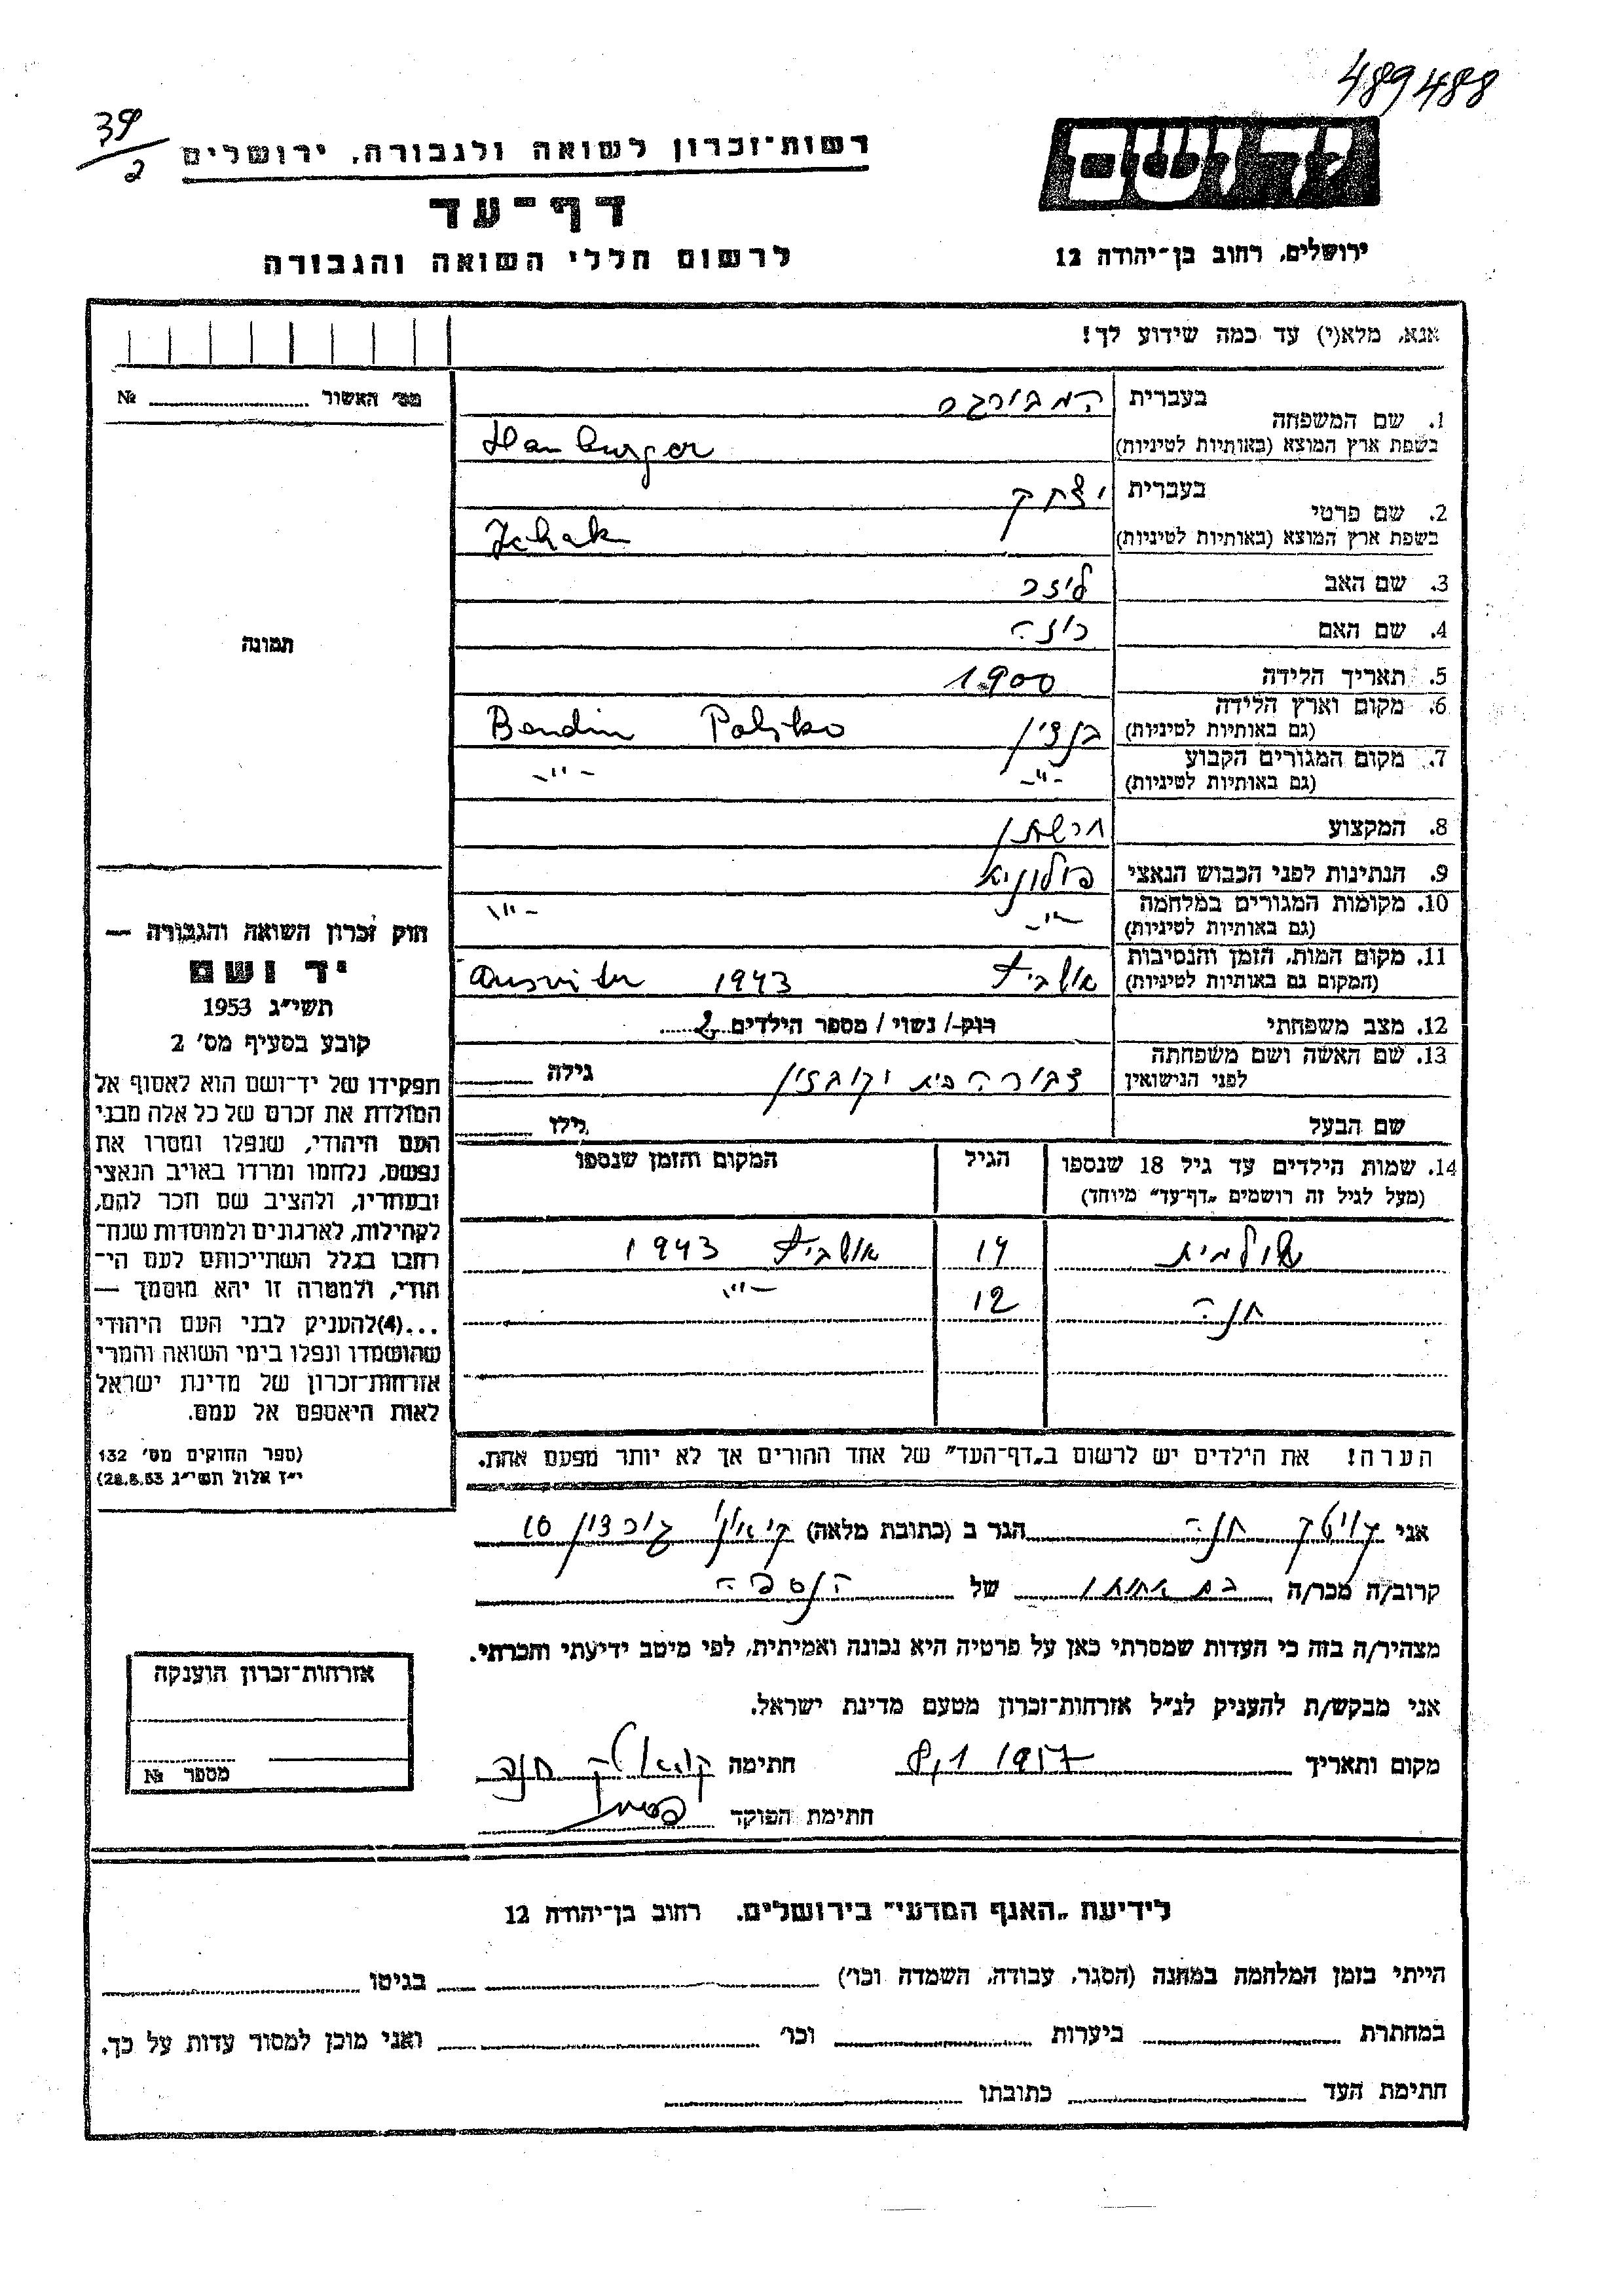 489488
39/2
רשות־זכרון לשואה ולגבורה, ירושלים
דף־עד
לרשום חללי השואה והגבורה
יד ושם
ירושלים, רחוב בן־יהודה 12
אנא, מלא(י) עד כמה שידוע לך!
מס׳ האשור № 
1. שם המשפחה בעברית המבורגר
בשפת ארץ המוצא (באותיות לטיניות) Hamburger
2. שם פרטי בעברית יצחק
בשפת ארץ המוצא (באותיות לטיניות) Jchak
3. שם האב ליזר
4. שם האם רוזה
5. תאריך הלידה 1900
6. מקום וארץ הלידה
(גם באותיות לטיניות) בנדין Bendin Poljsko
7. מקום המגורים הקבוע
(גם באותיות לטיניות) -"- -"-
8. המקצוע חרשתן
9. הנתינות לפני הכבוש הנאצי פולוניא
10. מקומות המגורים במלחמה
(גם באותיות לטיניות) -"- -"-
11. מקום המות, הזמן והנסיבות
(המקום גם באותיות לטיניות) 1943
12. מצב משפחתי רוק / נשוי / מספר הילדים 2
13. שם האשה ושם משפחתה
לפני הנישואין דבורה בית גילה
שם הבעל גילו
14. שמות הילדים עד גיל 18 שנספו
(מעל לגיל זה רושמים „דף־עד״ מיוחד) הגיל המקום והזמן שנספו
שולמית 14 1943
חנה 12 -"-
הערה! את הילדים יש לרשום ב„דף־העד״ של אחד ההורים אך לא יותר מפעם אחת.
תמונה
חוק זכרון השואה והגבורה —
יד ושם
תשי״ג 1953
קובע בסעיף מס׳ 2
תפקידו של יד־ושם הוא לאסוף אל
המולדת את זכרם של כל אלה מבני
העם היהודי, שנפלו ומסרו את
נפשם, נלחמו ומרדו באויב הנאצי
ובעוזריו, ולהציב שם וזכר להם,
לקהילות, לארגונים ולמוסדות שנח־
רבו בגלל השתייכותם לעם הי־
הודי, ולמטרה זו יהא מוסמך —
...(4)להעניק לבני העם היהודי
שהושמדו ונפלו בימי השואה והמרי
אזרחות־זכרון של מדינת ישראל
לאות היאספם אל עמם.
(ספר החוקים מס׳ 132
י״ז אלול תשי״ג 28.8.53)
אני חנה הגר ב (כתובת מלאה) 10
קרוב/ה מכר/ה בת אחותו של הנספה
מצהיר/ה בזה כי העדות שמסרתי כאן על פרטיה היא נכונה ואמיתית, לפי מיטב ידיעתי והכרתי.
אני מבקש/ת להעניק לנ״ל אזרחות־זכרון מטעם מדינת ישראל.
מקום ותאריך 1957 חתימה חנה
חתימת הפוקד
אזרחות־זכרון הוענקה
מספר №
לידיעת „האגף המדעי״ בירושלים. רחוב בן־יהודה 12
הייתי בזמן המלחמה במחנה (הסגר, עבודה, השמדה וכו׳) בגיטו
במחתרת ביערות וכו׳ ואני מוכן למסור עדות על כך.
חתימת העד כתובתו